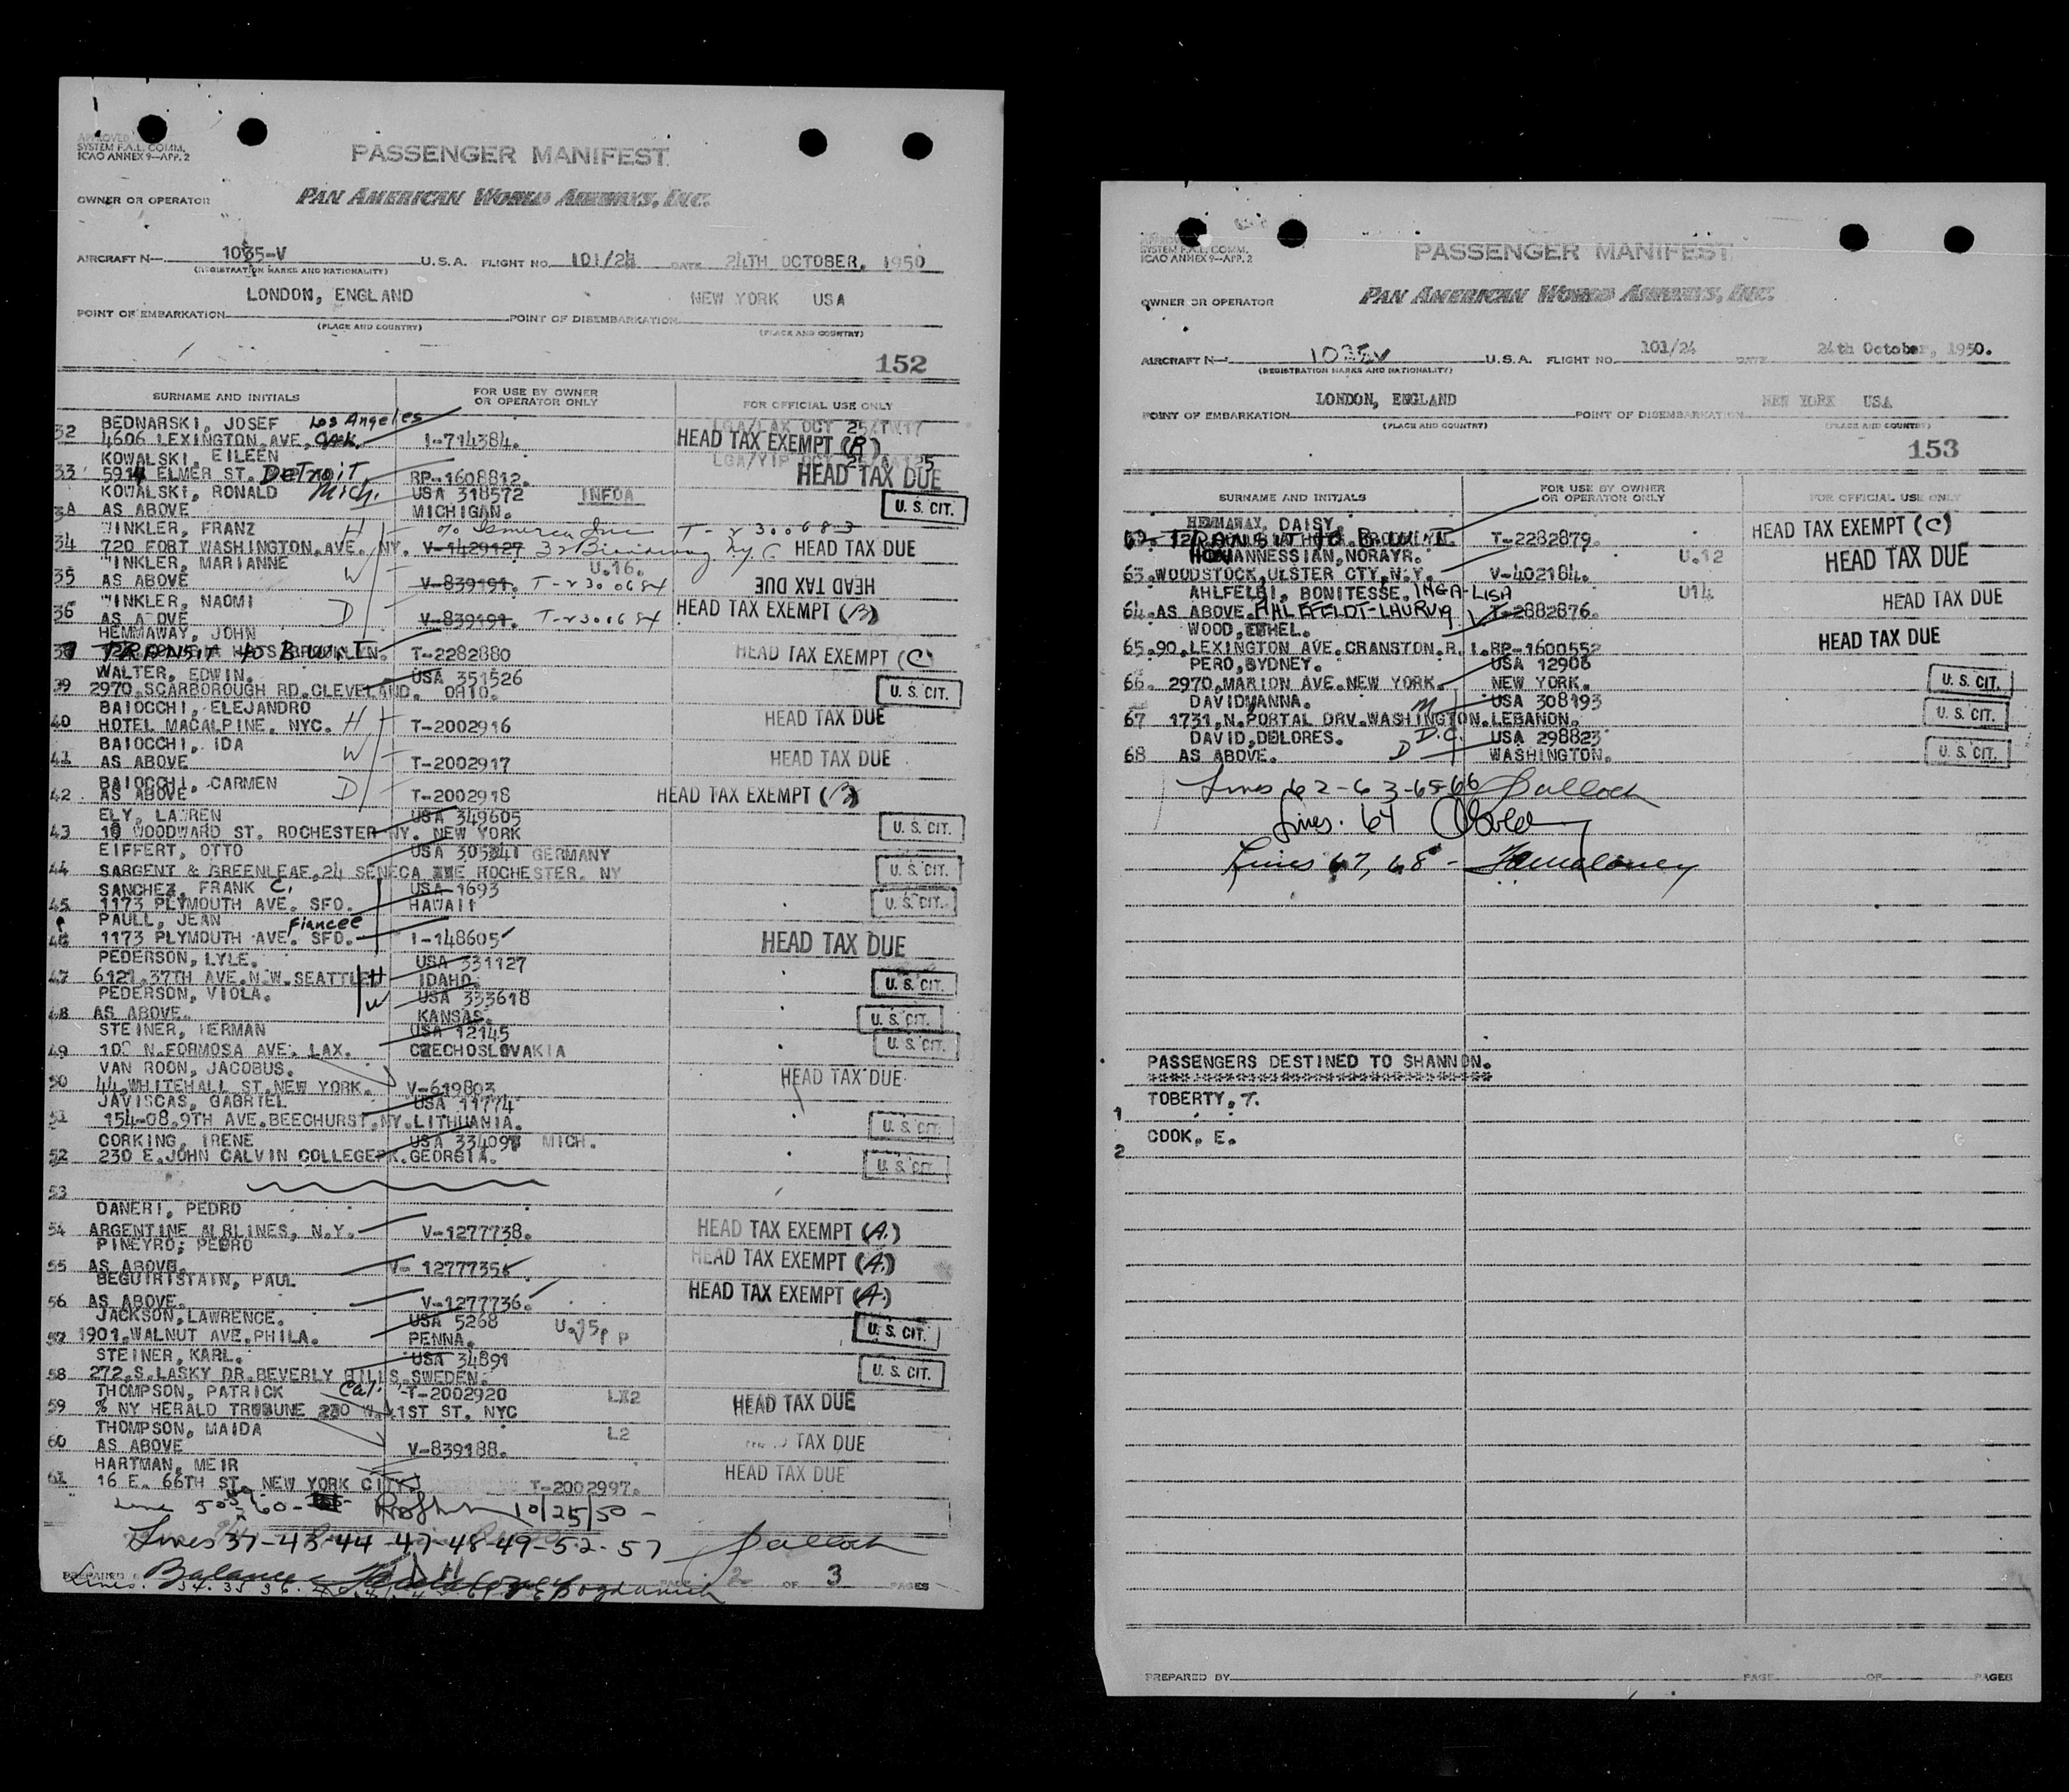 APPROVED
SYSTEM F.A.L. COMM.
ICAO ANNEX 9—APP. 2
PASSENGER MANIFEST
OWNER OR OPERATOR
PAN AMERICAN WORLD AIRWAYS, INC.
AIRCRAFT N— 1035-V U.S.A. FLIGHT NO. 101/24 DATE 24TH OCTOBER, 1950
(REGISTRATION MARKS AND NATIONALITY)
LONDON, ENGLAND NEW YORK USA
POINT OF EMBARKATION POINT OF DISEMBARKATION
(PLACE AND COUNTRY) (PLACE AND COUNTRY)
152
SURNAME AND INITIALS FOR USE BY OWNER OR OPERATOR ONLY FOR OFFICIAL USE ONLY
BEDNARSKI, JOSEF Los Angeles LGA/LAX OCT 25/TW17
32 4606 LEXINGTON AVE, I-714384. HEAD TAX EXEMPT (R)
KOWALSKI, EILEEN LGA/YIP OCT 25/AA125
33 5914 ELMER ST. Detroit, RP-1608812. HEAD TAX DUE
KOWALSKI, RONALD Mich. USA 318572 INFOA
3A AS ABOVE MICHIGAN. U. S. CIT.
WINKLER, FRANZ H T-2300683
34 720 FORT WASHINGTON.AVE. NY. V-1429127 HEAD TAX DUE
WINKLER, MARIANNE W U.16.
35 AS ABOVE V-839191. T-2300684 HEAD TAX DUE
WINKLER, NAOMI D
36 AS ABOVE V-839191. T-2300684 HEAD TAX EXEMPT (B)
HEMMAWAY, JOHN
37 TRANSIT to B.W.I. T-2282880 HEAD TAX EXEMPT (C)
WALTER, EDWIN. USA 351526
39 2970.SCARBOROUGH RD.CLEVELAND. OHIO. U. S. CIT.
BAIOCCHI, ELEJANDRO
40 HOTEL MACALPINE. NYC. H T-2002916 HEAD TAX DUE
BAIOCCHI, IDA W
41 AS ABOVE T-2002917 HEAD TAX DUE
BAIOCCHI, CARMEN
42 AS ABOVE D T-2002918 HEAD TAX EXEMPT (B)
ELY, LAUREN USA 349605
43 10 WOODWARD ST. ROCHESTER NY. NEW YORK U. S. CIT.
EIFFERT, OTTO USA 305241 GERMANY
44 SARGENT & GREENLEAF,24 SENECA AVE ROCHESTER. NY U. S. CIT.
SANCHEZ, FRANK C. USA 1693
45 1173 PLYMOUTH AVE. SFO. HAWAII U. S. CIT.
PAULL, JEAN Fiancee
46 1173 PLYMOUTH AVE. SFO. I-148605 HEAD TAX DUE
PEDERSON, LYLE. USA 331127
47 6121.37TH AVE.N.W.SEATTLE H IDAHO. U. S. CIT.
PEDERSON, VIOLA. W USA 333618
48 AS ABOVE. KANSAS. U. S. CIT.
STEINER, HERMAN USA 12145
49 108 N.FORMOSA AVE. LAX. CZECHOSLOVAKIA U. S. CIT.
VAN ROON, JACOBUS.
50 44.WHITEHALL ST.NEW YORK. V-619803 HEAD TAX DUE
JAVISCAS, GABRIEL USA 11774
51 154-08.9TH AVE.BEECHURST.NY.LITHUANIA. U. S. CIT.
CORKING, IRENE USA 334091 MICH.
52 230 E.JOHN CALVIN COLLEGEPK.GEORGIA. U. S. CIT.
53
DANERI, PEDRO
54 ARGENTINE AIRLINES, N.Y. V-1277738. HEAD TAX EXEMPT (A.)
PINEYRO, PEDRO
55 AS ABOVE. V- 1277735 HEAD TAX EXEMPT (A.)
BEGUIRISTAIN, PAUL
56 AS ABOVE. V-1277736. HEAD TAX EXEMPT (A.)
JACKSON,LAWRENCE. USA 5268 U.15
57 1901.WALNUT AVE.PHILA. PENNA. U. S. CIT.
STEINER, KARL. USA 34891
58 272.S.LASKY DR.BEVERLY HILLS.SWEDEN. U. S. CIT.
THOMPSON, PATRICK Cal. T-2002920 LX2
59 % NY HERALD TRIBUNE 230 W.41ST ST. NYC HEAD TAX DUE
THOMPSON, MAIDA L2
60 AS ABOVE V-839188. TAX DUE
HARTMAN, MEIR HEAD TAX DUE
61 16 E. 66TH ST. NEW YORK CITY T-2002997.
10/25/50
Lines 37-43-44-47-48-49-52-57
PREPARED Balance PAGE 2 OF 3 PAGES
Lines. 34. 35 36.
SYSTEM F.A.L. COMM.
ICAO ANNEX 9—APP. 2
PASSENGER MANIFEST
OWNER OR OPERATOR
PAN AMERICAN WORLD AIRWAYS, INC.
AIRCRAFT N— 1035V U.S.A. FLIGHT NO. 101/24 DATE 24th October, 1950.
(REGISTRATION MARKS AND NATIONALITY)
LONDON, ENGLAND NEW YORK USA
POINT OF EMBARKATION POINT OF DISEMBARKATION
(PLACE AND COUNTRY) (PLACE AND COUNTRY)
153
SURNAME AND INITIALS FOR USE BY OWNER OR OPERATOR ONLY FOR OFFICIAL USE ONLY
HEMMAWAY, DAISY.
TRANSIT to B.W.I. T-2282879. HEAD TAX EXEMPT (C)
HOVANNESSIAN,NORAYR. U.12
63.WOODSTOCK,ULSTER CTY,N.Y. V-402184. HEAD TAX DUE
AHLFELDT, BONITESSE. INGA-LISA U14
64.AS ABOVE. AHLEFELDT-LAURVIG T-2882876. HEAD TAX DUE
WOOD,ETHEL.
65.90.LEXINGTON AVE.CRANSTON.R.I.RP-1600552 HEAD TAX DUE
PERO,SYDNEY. USA 12906
66. 2970.MARION AVE.NEW YORK. NEW YORK. U. S. CIT.
DAVID,ANNA. M USA 308193
67 1731.N.PORTAL DRV.WASHINGTON.LEBANON. U. S. CIT.
DAVID,DOLORES. D.C. USA 298823
68 AS ABOVE. D WASHINGTON. U. S. CIT.
Lines 62-63-65-66
Lines. 64
Lines 67, 68 -
PASSENGERS DESTINED TO SHANNON.
TOBERTY,T.
1
COOK, E.
2
PREPARED BY PAGE OF PAGES